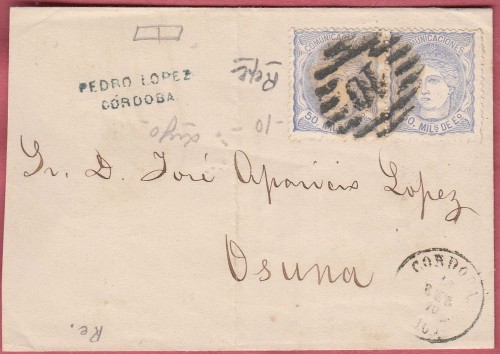 PEDRO LOPEZ
CÓRDOBA
COMUNICACIONES
50 MILS DE Eº
COMUNICACIONES
50 MILS DE Eº
10
-10-
Sr. D. José Aparicio Lopez
Osuna
CORDOBA
Re.